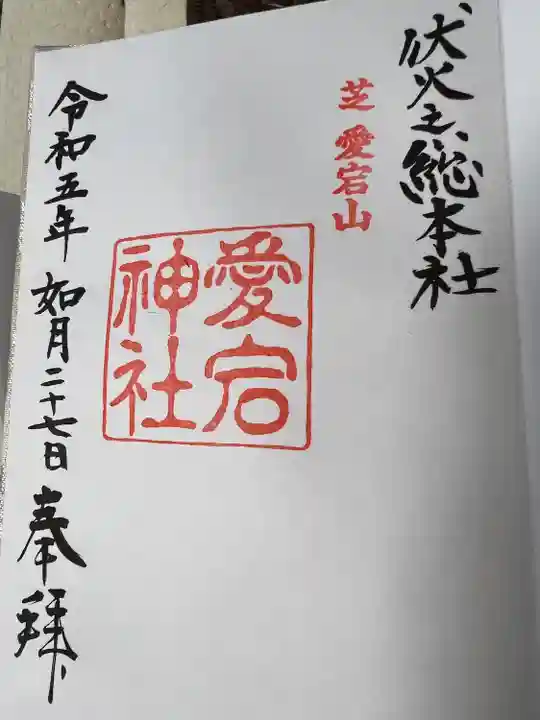 伏火之総本社
芝 愛宕山
愛宕
神社
令和五年 如月二十七日 奉拝